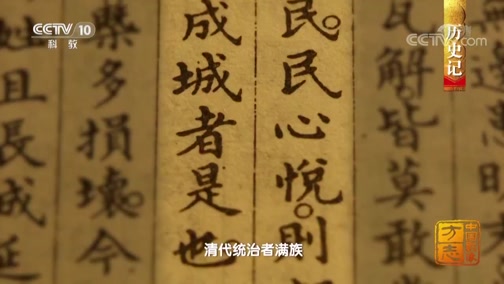 CCTV 10
科教
CCTV.com
历史记
瓦解皆莫敢
民。民心悦。则
成城者是也
多損壞今
且長成延
清代统治者满族
方志